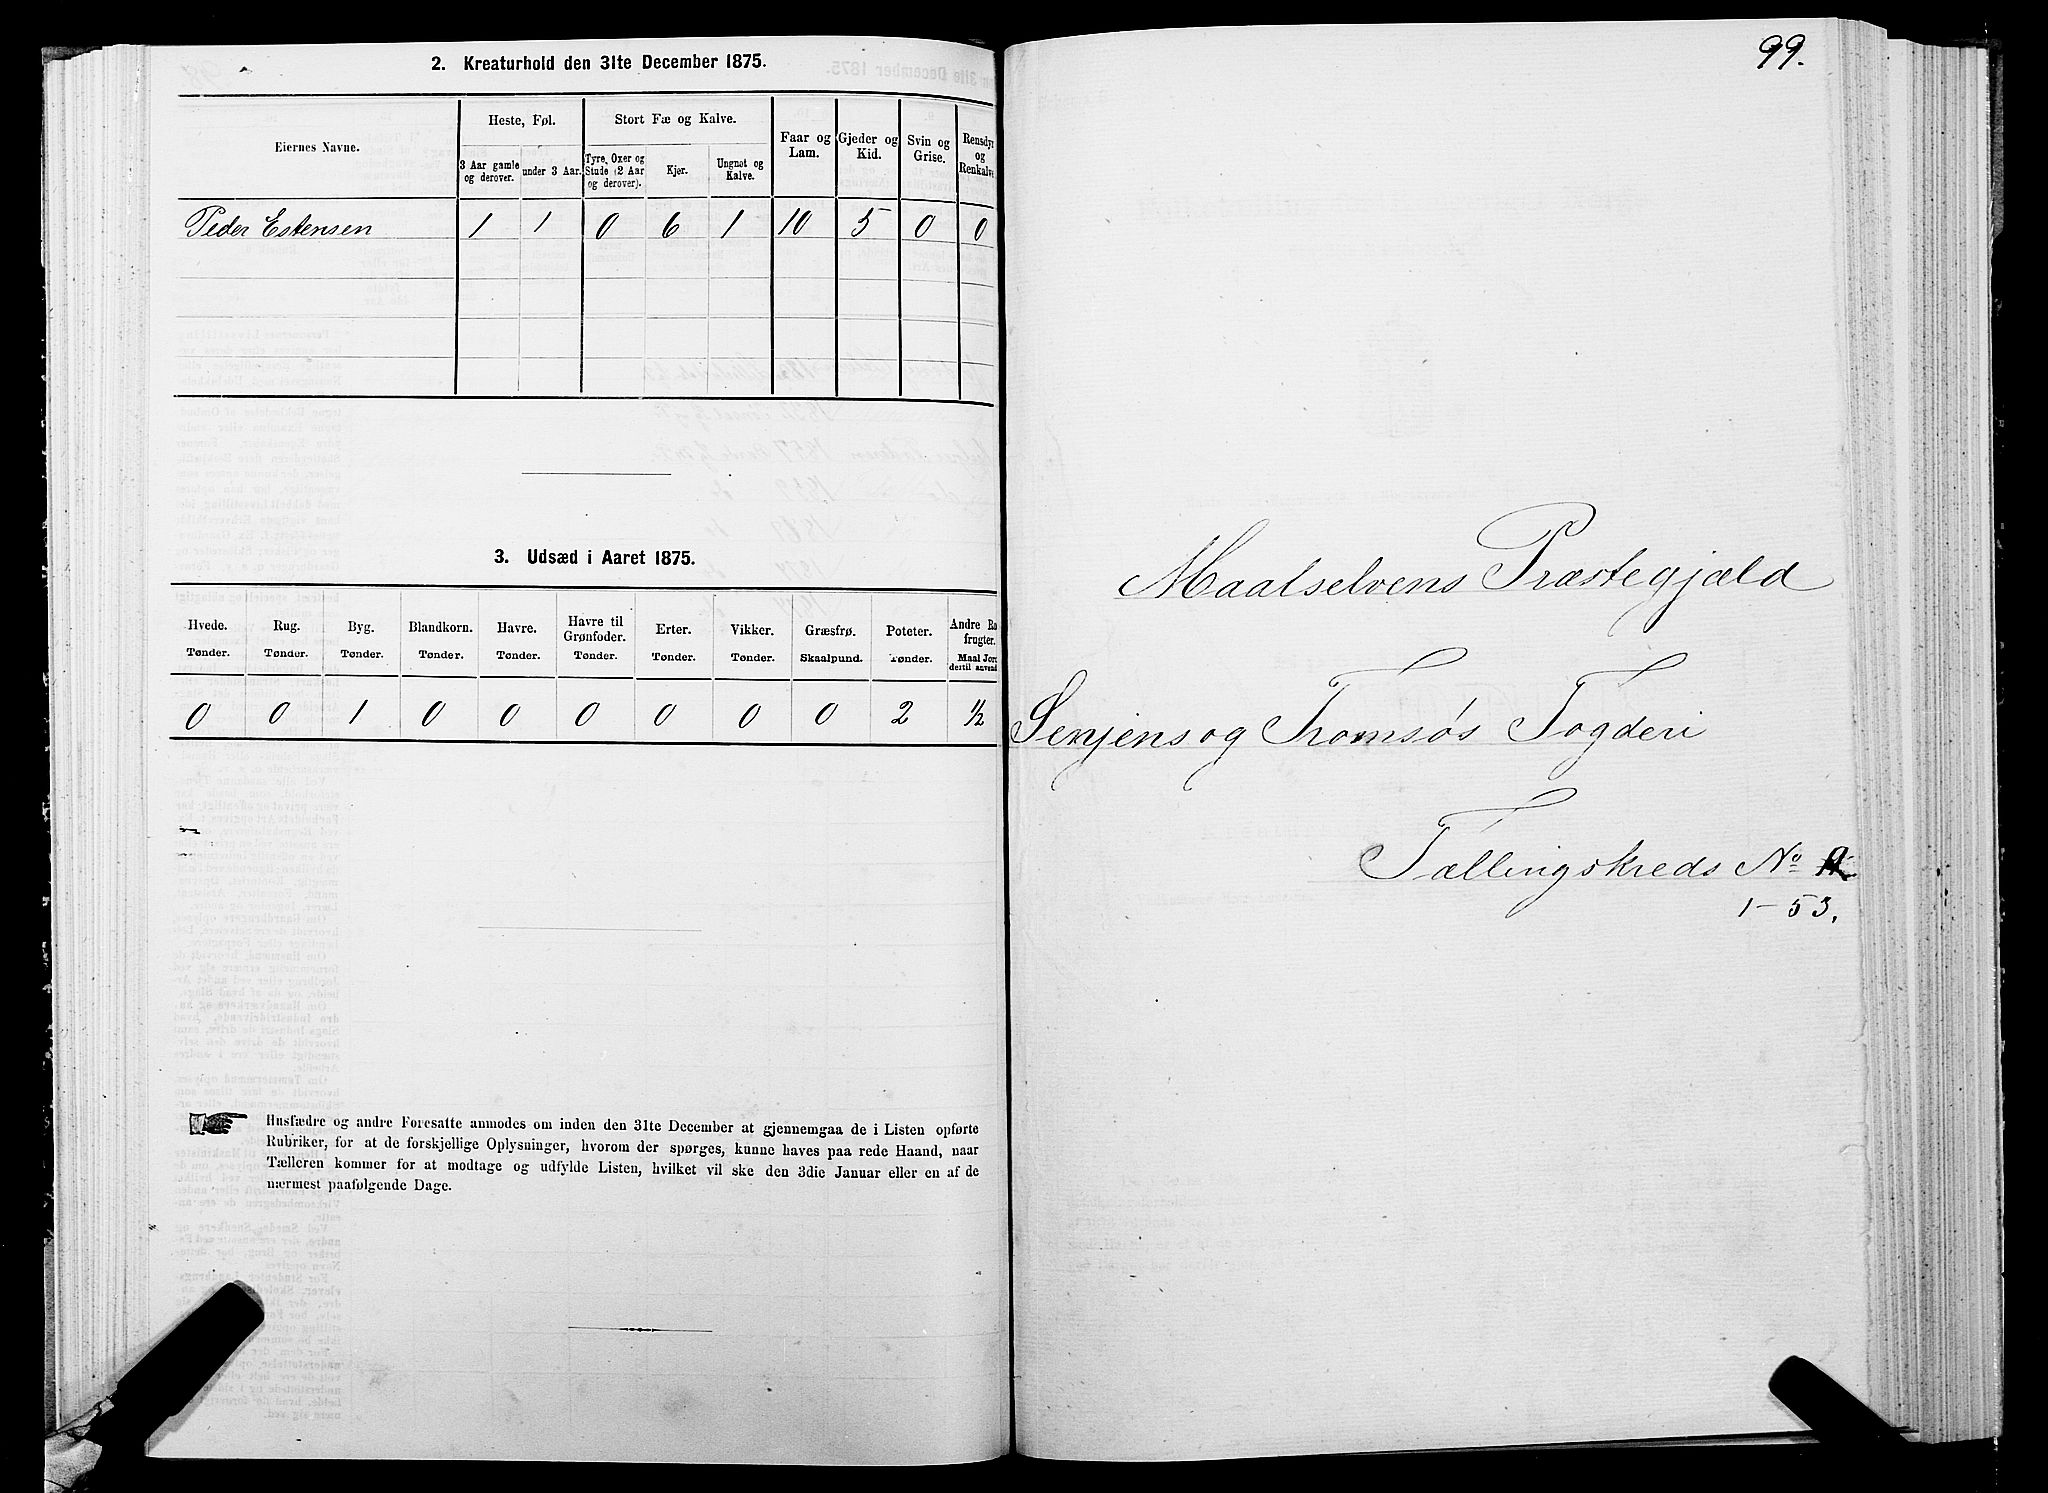 2. Kreaturhold den 31te December 1875.
Eiernes Navne.
Heste, Føl.
Stort Fæ og Kalve.
Faar og Lam.
Gjeder og Kid.
Svin og Grise.
Rensdyr og Renkalve
3 Aar gamle og derover.
under 3 Aar.
Tyre, Oxer og Stude (2 Aar og derover).
Kjør.
Ungnøt og Kalve.
Peder Estensen 1 1 0 6 1 10 5 0 0
3. Udsæd i Aaret 1875.
Hvede. Rug. Byg. Blandkorn. Havre. Havre til Grønfoder. Erter. Vikker. Græsfrø. Poteter. Andre Ro frugter.
Tønder. Tønder. Tønder. Tønder. Tønder. Tønder. Tønder. Tønder. Skaalpund. Tønder. Maal Jord dertil anvendt
0 0 1 0 0 0 0 0 0 2 1/2
Husfædre og andre Foresatte anmodes om inden den 31te December at gjennemgaa de i Listen opførte
Rubriker, for at de forskjellige Oplysninger, hvorom der spørges, kunne haves paa rede Haand, naar
Tælleren kommer for at modtage og udfylde Listen, hvilket vil ske den 3die Januar eller en af de
nærmest paafølgende Dage.
99.
Maalselvens Præstegjæld
Senjens og Tromsøs Fogderi
Tællingskreds No
1-53.